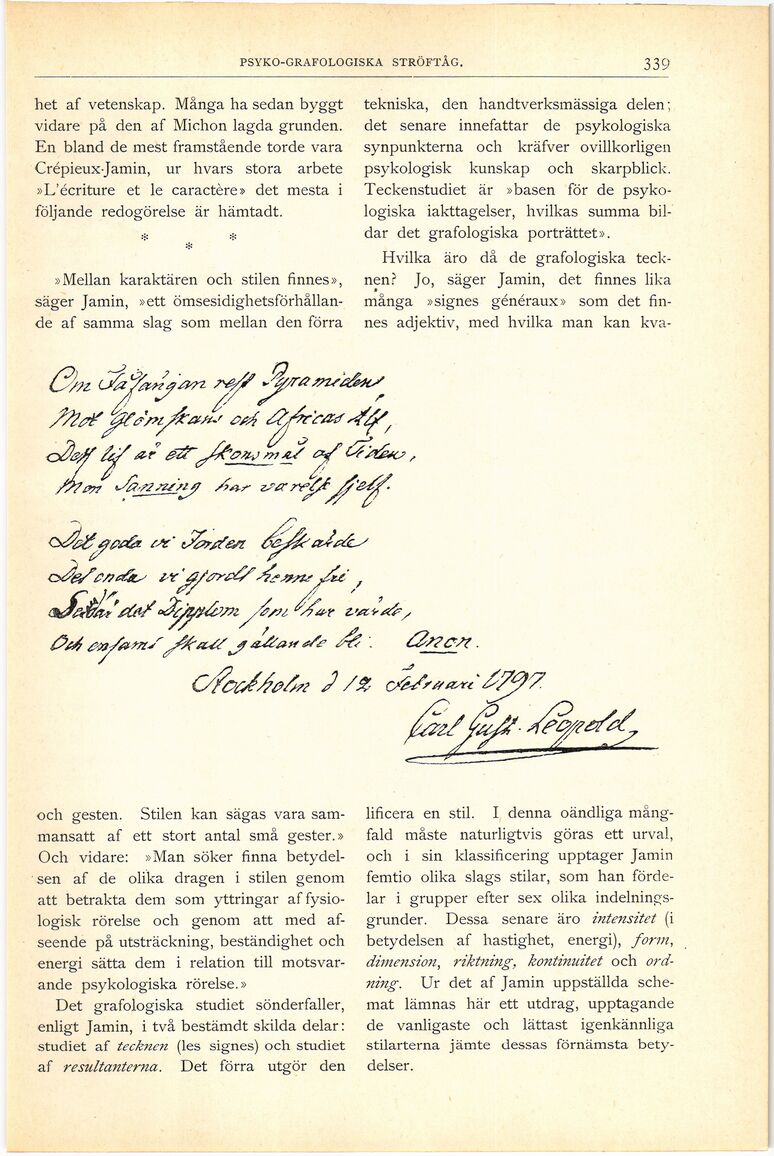 PSYKO-GRAFOLOGISKA STRÖFTÅG.
339
het af vetenskap. Många ha sedan byggt
vidare på den af Michon lagda grunden.
En bland de mest framstående torde vara
Crépieux-Jamin, ur hvars stora arbete
»L'écriture et le caractère» det mesta i
följande redogörelse är hämtadt.
* * *
»Mellan karaktären och stilen finnes»,
säger Jamin, »ett ömsesidighetsförhållan-
de af samma slag som mellan den förra
och gesten. Stilen kan sägas vara sam-
mansatt af ett stort antal små gester.»
Och vidare: »Man söker finna betydel-
sen af de olika dragen i stilen genom
att betrakta dem som yttringar af fysio-
logisk rörelse och genom att med af-
seende på utsträckning, beständighet och
energi sätta dem i relation till motsvar-
ande psykologiska rörelse.»
Det grafologiska studiet sönderfaller,
enligt Jamin, i två bestämdt skilda delar:
studiet af tecknen (les signes) och studiet
af resultanterna. Det förra utgör den
tekniska, den handtverksmässiga delen;
det senare innefattar de psykologiska
synpunkterna och kräfver ovillkorligen
psykologisk kunskap och skarpblick.
Teckenstudiet är »basen för de psyko-
logiska iakttagelser, hvilkas summa bil-
dar det grafologiska porträttet».
Hvilka äro då de grafologiska teck-
nen? Jo, säger Jamin, det finnes lika
många »signes généraux» som det fin-
nes adjektiv, med hvilka man kan kva-
lificera en stil. I denna oändliga mång-
fald måste naturligtvis göras ett urval,
och i sin klassificering upptager Jamin
femtio olika slags stilar, som han förde-
lar i grupper efter sex olika indelnings-
grunder. Dessa senare äro intensitet (i
betydelsen af hastighet, energi), form,
dimension, riktning, kontinuitet och ord-
ning. Ur det af Jamin uppställda sche-
mat lämnas här ett utdrag, upptagande
de vanligaste och lättast igenkännliga
stilarterna jämte dessas förnämsta bety-
delser.
Om Fåfängan rest Pyramiden
Mot Glömskans och Africas Älf,
Dess lif är ett skonsmål af Tiden,
Men Sanning har varelse sjelf.
Det goda vi Jorden beskärde
Det onda vi gjordt henne fri,
det Dipplom som har värde,
Och ensamt skall gällande bli. Anon.
Stockholm d 12 Februari 1797.
Carl Gust. Leopold